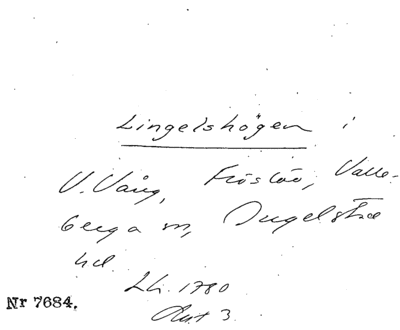 Lingelshögen i
V. Vång, Fröslöv, Valle-
berga sn, Ingelstad
hd.
Lh. 1780
Akt 3.
Nr 7684.